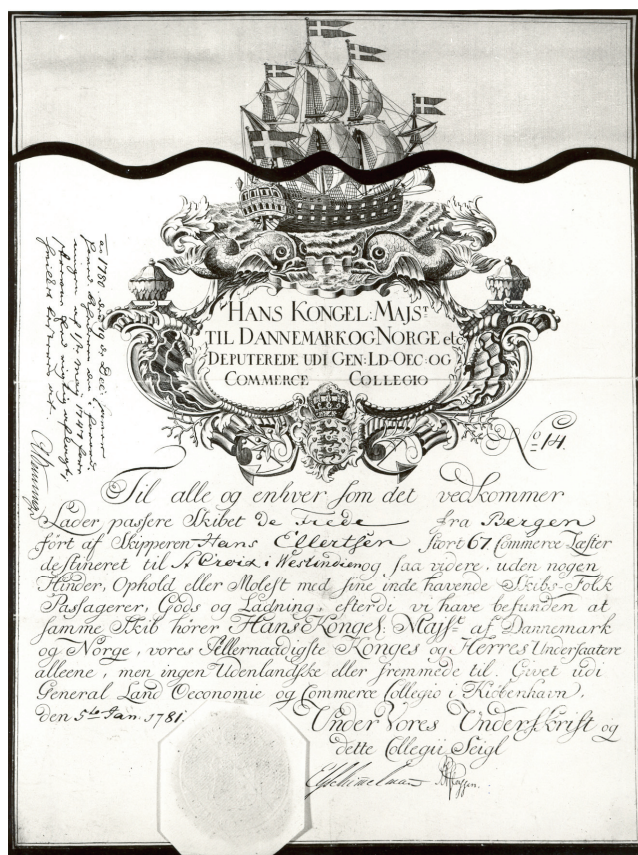 HANS KONGEL: MAJST
TIL DANNEMARK OG NORGE etc
DEPUTEREDE UDI GEN: LD-OEC: OG
COMMERCE COLLEGIO
No 14.
Til alle og enhver som det vedkommer
Lader passere Skibet De Trede fra Bergen
ført af Skipperen Hans Ellertsen stort 67 Commerce Læster
destineret til St Croix i Westindien og saa videre, uden nogen
Hinder, Ophold eller Molest med sine inde havende Skibs-Folk
Passagerer, Gods og Ladning, efterdi vi have befunden at
samme Skib hører Hans Kongel: Majst. af Dannemark
og Norge, vores Allernaadigste Konges og Herres Undersaatere
alleene, men ingen Udenlandske eller fremmede til. Givet udi
General Land Oeconomie og Commerce Collegio i Kiöbenhavn,
den 5te Jan. 1781.
Under Vores Underskrift og
dette Collegii Seigl